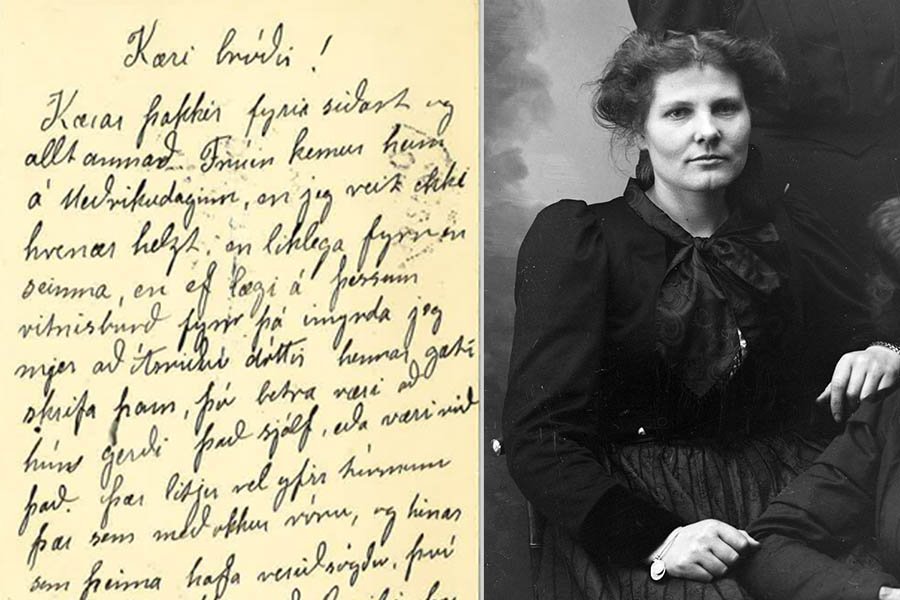 Kæri bróðir!
Kærar þakkir fyrir siðast og
allt annað. Frúin kemur heim
á Miðvikudaginn, en jeg veit ekki
hvenær helzt, en liklega fyr en
seinna, en ef lægi á þessum
vitnisburð fyr þá imynda jeg
mjer að dóttir hennar gæti
skrifa þam, þó betra væri að
hún gerði það sjálf, eða væri við
það. Þær litju vel yfir
þær sem með okkur vóru, og hinar
sem heima hafa því